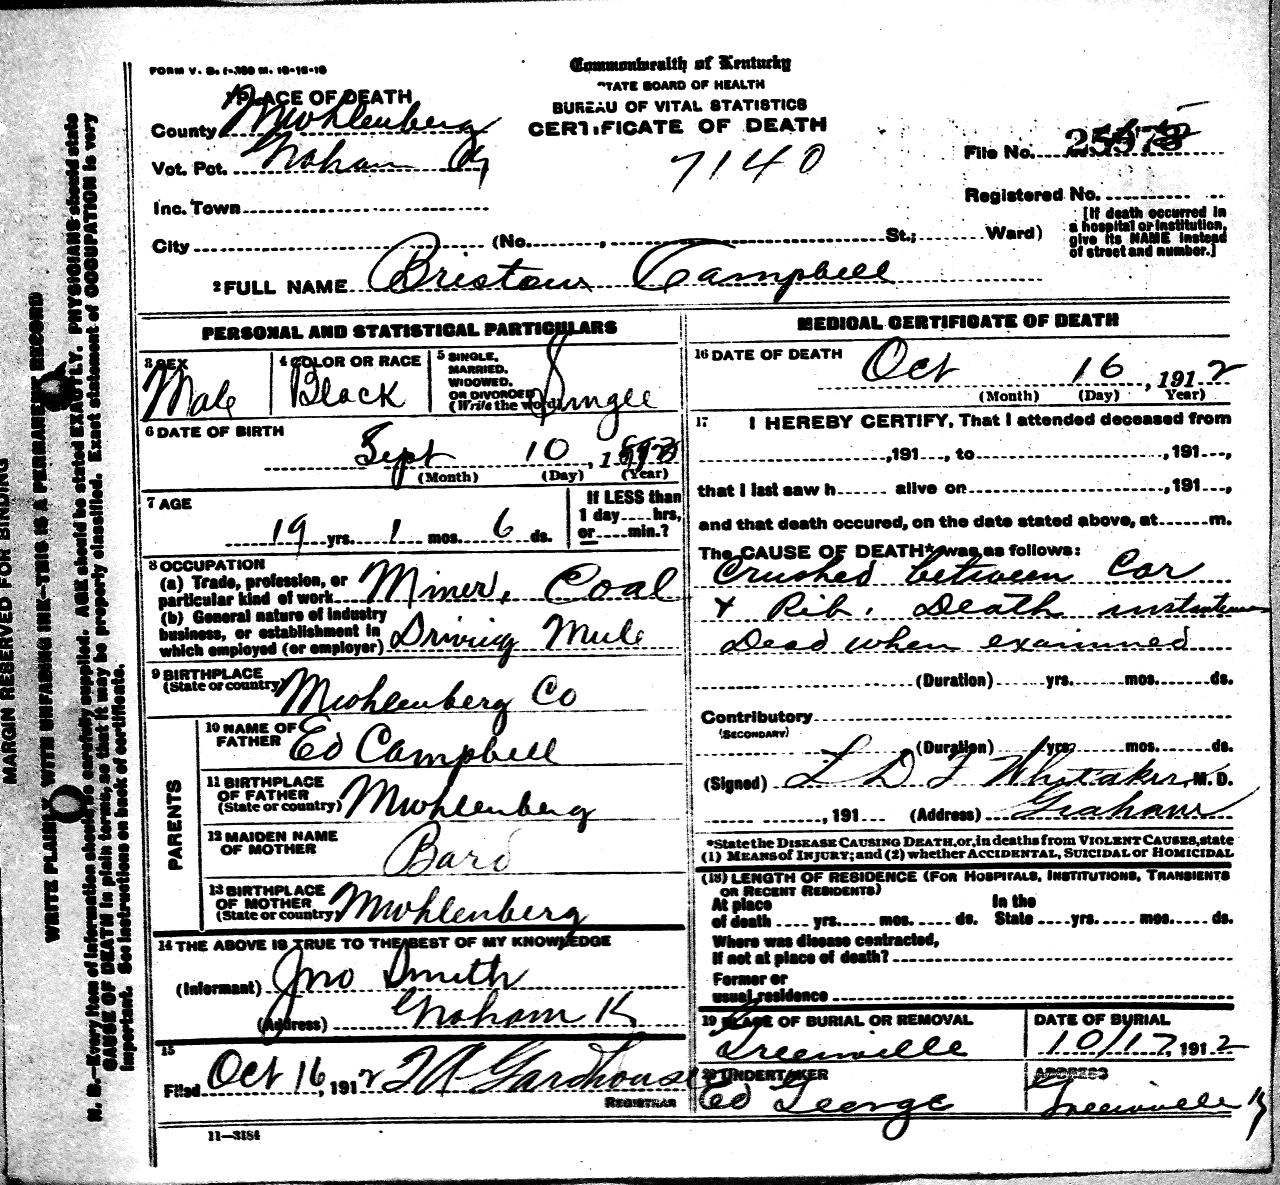 FORM V. S. 1-350 M. 10-16-10
Commonwealth of Kentucky
STATE BOARD OF HEALTH
BUREAU OF VITAL STATISTICS
CERTIFICATE OF DEATH
1 PLACE OF DEATH
County Muhlenberg
Vot. Pct. Graham Ky
7140
File No.
Registered No.
Inc. Town
[If death occurred in a hospital or institution, give its NAME instead of street and number.]
City (No. , St.; Ward)
2 FULL NAME Bristow Campbell
PERSONAL AND STATISTICAL PARTICULARS
3 SEX Male
4 COLOR OR RACE Black
5 SINGLE, MARRIED, WIDOWED, OR DIVORCED (Write the word) Single
6 DATE OF BIRTH
Sept 10, 1
(Month) (Day) (Year)
7 AGE
19 yrs. 1 mos. 6 ds.
If LESS than 1 day hrs, or min.?
8 OCCUPATION
(a) Trade, profession, or particular kind of work Miner, Coal
(b) General nature of industry business, or establishment in which employed (or employer) Driving Mule
9 BIRTHPLACE (State or country) Muhlenberg Co
PARENTS
10 NAME OF FATHER Ed Campbell
11 BIRTHPLACE OF FATHER (State or country) Muhlenberg
12 MAIDEN NAME OF MOTHER Bard
13 BIRTHPLACE OF MOTHER (State or country) Muhlenberg
14 THE ABOVE IS TRUE TO THE BEST OF MY KNOWLEDGE
(Informant) Jno Smith
(Address) Graham K
15
Filed Oct 16, 1912 Gardhouse
REGISTRAR
11—3184
MEDICAL CERTIFICATE OF DEATH
16 DATE OF DEATH
Oct 16, 1912
(Month) (Day) Year)
17 I HEREBY CERTIFY, That I attended deceased from
, 191 , to , 191 ,
that I last saw h alive on , 191 ,
and that death occured, on the date stated above, at m.
The CAUSE OF DEATH* was as follows:
Crushed between Car
& Rib. Death instantaneous
Dead when examined
(Duration) yrs. mos. ds.
Contributory
(SECONDARY)
(Duration) yrs. mos. ds.
(Signed) L D F Whitaker, M. D.
, 191 (Address) Graham
*State the DISEASE CAUSING DEATH, or, in deaths from VIOLENT CAUSES, state
(1) MEANS OF INJURY; and (2) whether ACCIDENTAL, SUICIDAL or HOMICIDAL
(18) LENGTH OF RESIDENCE (FOR HOSPITALS, INSTITUTIONS, TRANSIENTS
OR RECENT RESIDENTS)
At place of death yrs. mos. ds. In the State yrs. mos. ds.
Where was disease contracted,
If not at place of death?
Former or
usual residence
19 PLACE OF BURIAL OR REMOVAL
Greenville
DATE OF BURIAL
10/17, 1912
20 UNDERTAKER
Ed George
ADDRESS
Greenville Ky
MARGIN RESERVED FOR BINDING
WRITE PLAINLY WITH UNFADING INK—THIS IS A PERMANENT RECORD
N. B.—Every item of information should be carefully supplied. AGE should be stated EXACTLY. PHYSICIANS should state
CAUSE OF DEATH in plain terms, so that it may be properly classified. Exact statement of OCCUPATION is very
important. See instructions on back of certificate.